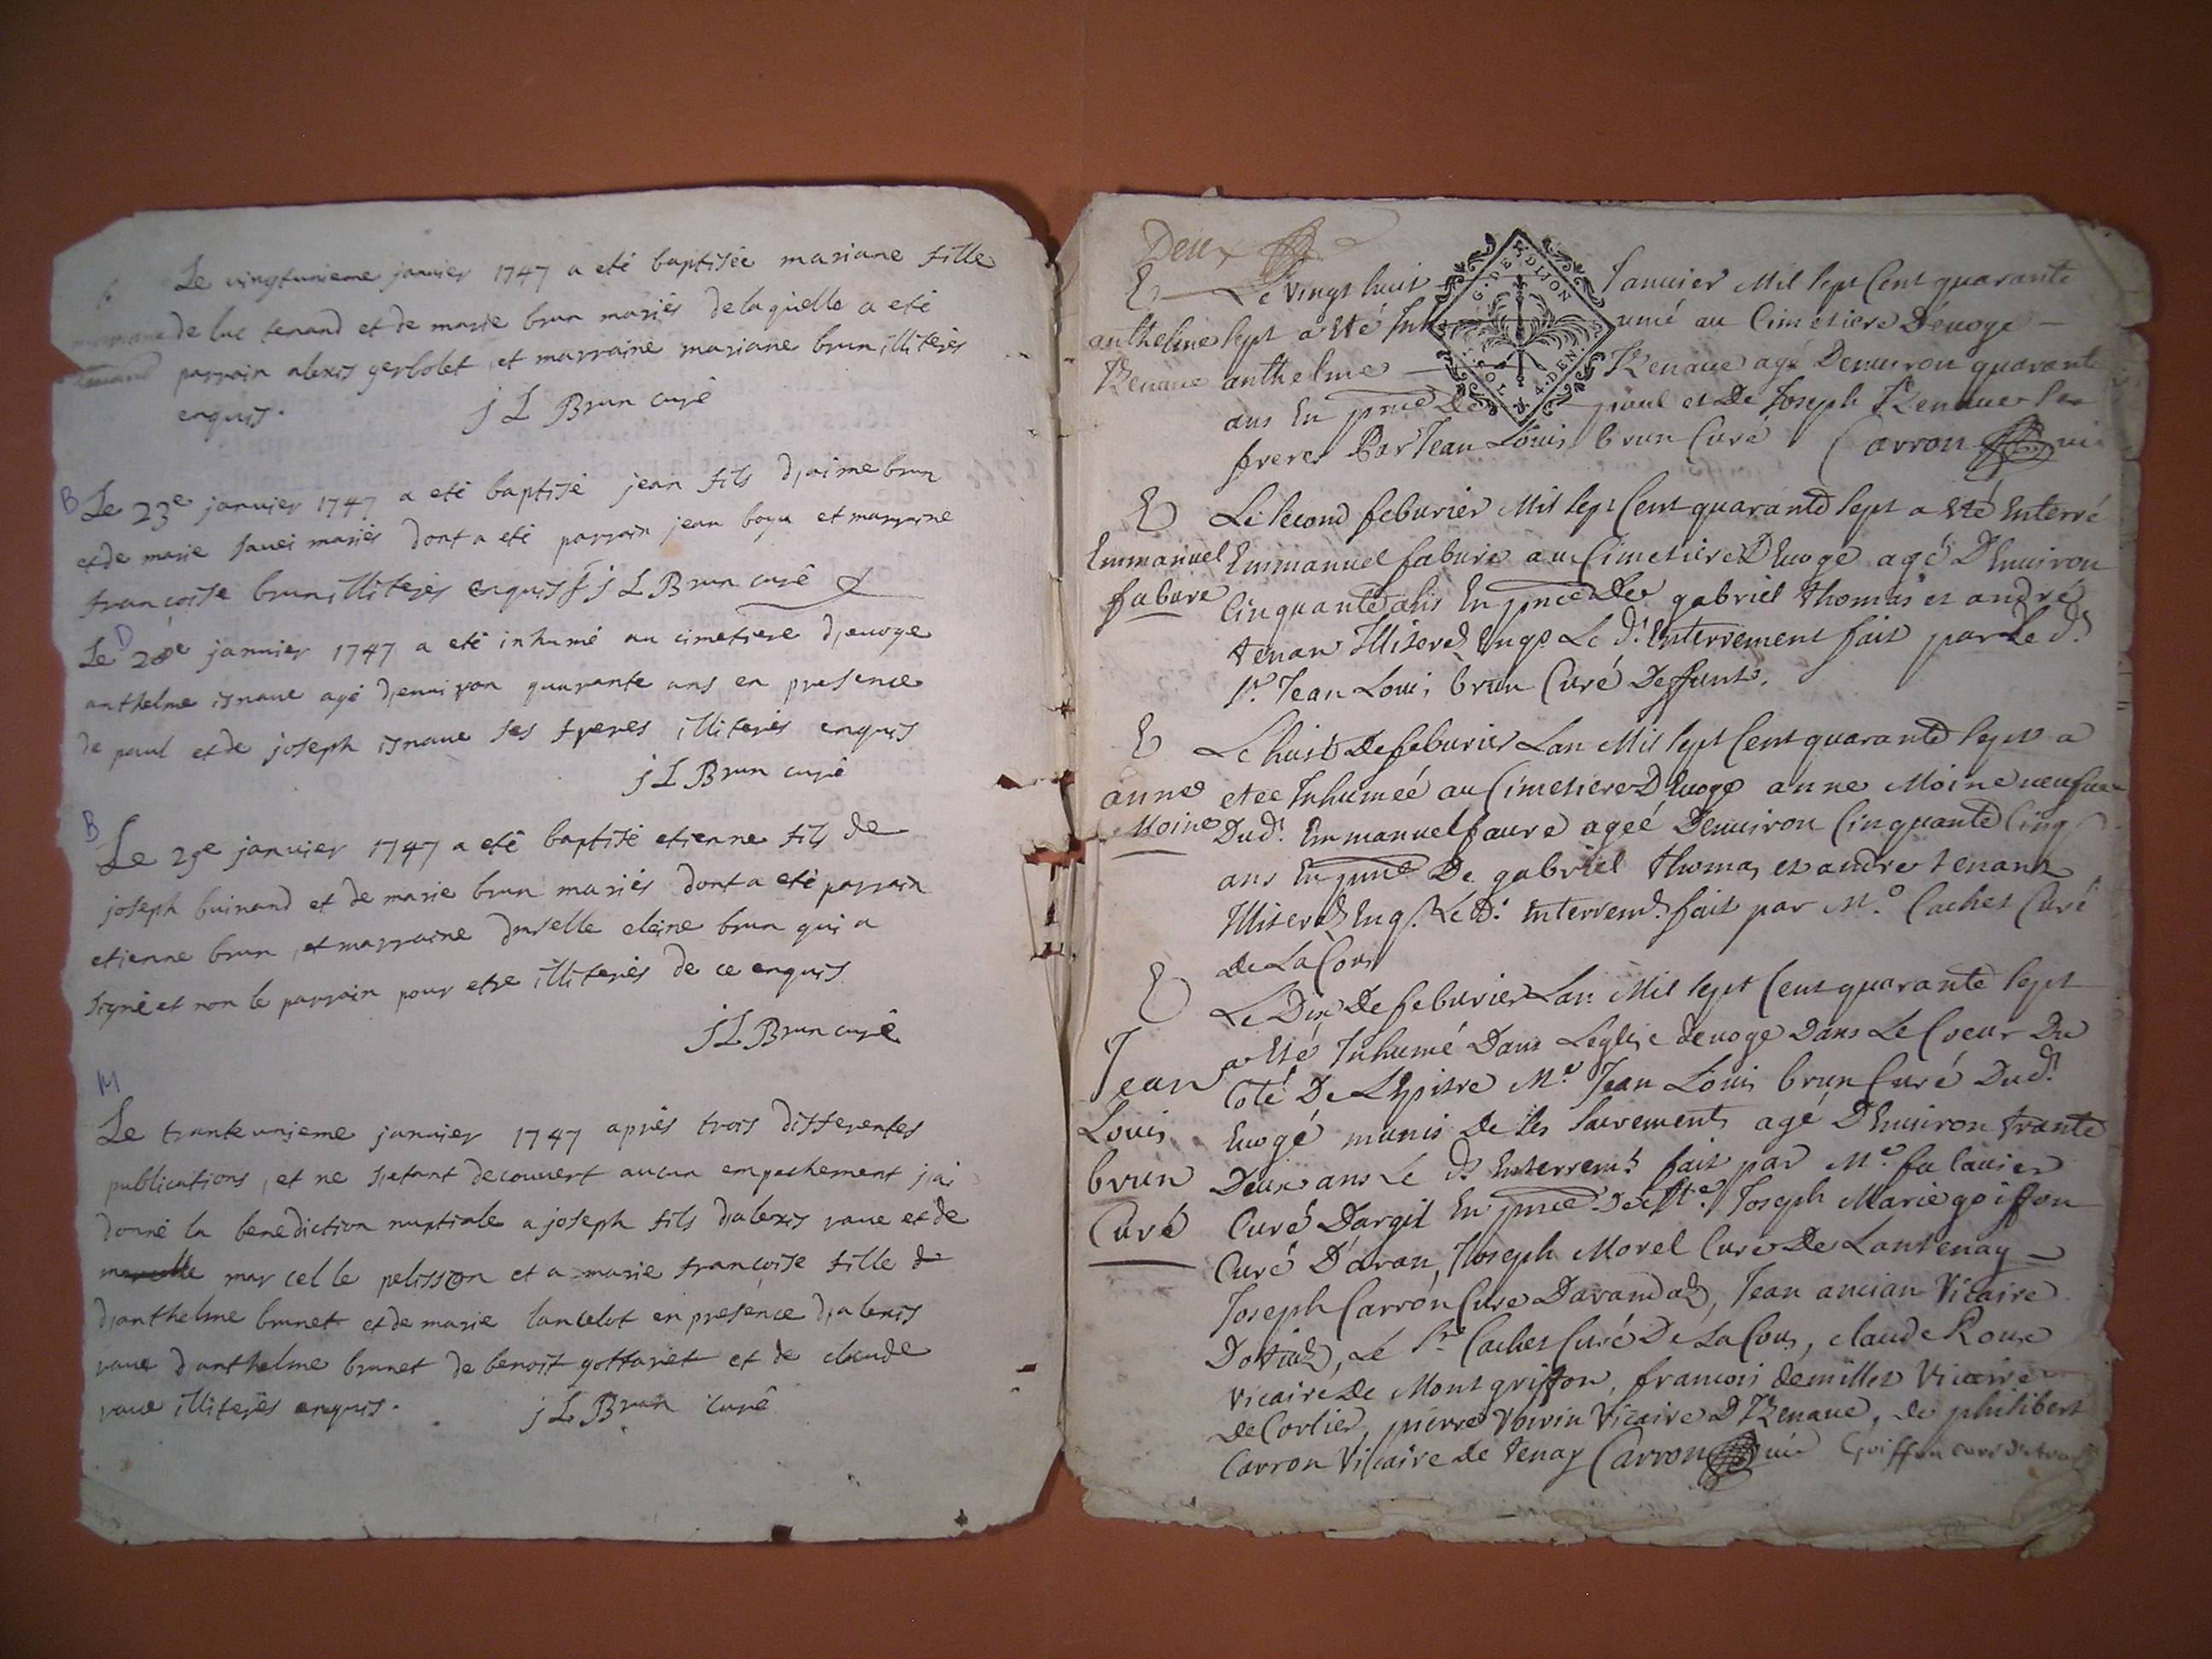 Le vingtunieme janvier 1747 a eté baptisée mariane fille
de luc tenand et de marie brun mariés de laquelle a eté
parrain alexis gerbolet et marraine mariane brun illiterés
enquis. j L Brun curé
B
Le 23e janvier 1747 a eté baptisé jean fils d'aime brun
et de marie mariés dont a eté parrain jean et marraine
francoise brun illiterés enquis j L Brun curé
D
Le 28e janvier 1747 a eté inhumé au cimetiere d'euoge
anthelme isnaue agé d'enuiron quarante ans en presence
de paul et de joseph isnaue ses freres illiterés enquis
j L Brun curé
B
Le 29e janvier 1747 a eté baptisé etienne fils de
joseph buinand et de marie brun mariés dont a eté parrain
etienne brun, et marraine eleine brun qui a
signé et non le parrain pour etre illiterés de ce enquis
j L Brun curé
M
Le trante unieme janvier 1747 aprés trois differentes
publications, et ne s'etant decouvert aucun empechement j'ai
donné la benediction nuptiale a joseph fils d'alexis raue et de
marcelle pelisson et a marie francoise fille
d'anthelme brunet et de marie lancelot en presence d'alexis
raue d'anthelme brunet de benoit gottaret et de claude
raue illiterés enquis. j L Brun curé
Deux
E
anthelme
Izenaue
Le Vingt huit Januier Mil sept Cent quarante
sept a eté Inhumé au Cimetiere Deuoge
anthelme Izenaue agé Denuiron quarante
ans En pnce De paul et De Joseph Izenaue ses
freres Par Jean Louis brun Curé Carron
G. DE DIJON
SOL. 4. DEN.
E
Emmanuel
fabure
Le second feburier Mil sept Cent quarante sept a eté Enterré
Emmanuel fabure au Cimetiere D'Euoge agé D'Enuiron
Cinquante ans En pnce De gabriel thomas et andré
tenan Le dt. Enterrement fait par Le dt
Sr. Jean Louis brun Curé Deffunt.
E
anne
Moine
Le huit De feburier Lan Mil sept Cent quarante sept a
eteé Inhumeé au Cimetiere D'Euoge anne Moine
Dudt. Emmanuel faure ageé Denuiron Cinquante Cinq
ans En pnce De gabriel thomas et andre tenant
Le dt. Enterremt. fait par Mre Cachet Curé
De La Cour
E
Jean
Louis
brun
Curé
Le Dix De feburier Lan Mil sept Cent quarante sept
a eté Inhumé Dans Leglise deuoge Dans Le Coeur Du
Coté De L'Epitre Mre Jean Louis brun Curé Dudt.
Euogé munis De ses sacrements agé D'Enuiron trante
Deux ans Le dt. Enterremt. fait par Mre
Curé Dargit En pnce De Mre Joseph Marie goiffon
Curé D'aran, Joseph Morel Curé De Lantenay
Joseph Carron Curé Dauandaz, Jean ancian Vicaire
Dortiaz, Le Sr. Cachet Curé De La Cour, claude Roux
Vicaire De Mont griffon, francois demillet Vicaire
de Corlier, pierre Vicaire D'Izenaue, de philibert
Carron Vicaire de tenay Carron Goiffon curé